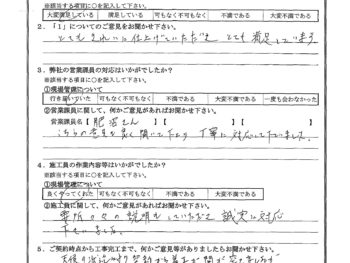 ※該当する項目に○を記入して下さい。
大変満足している 満足している 可もなく不可もなく 不満である 大変不満である
2.「1」についてのご意見をお聞かせ下さい。
とてもきれいに仕上げていただき とても満足しています
3. 弊社の営業課員の対応はいかがでしたか？
※該当する項目に○を記入して下さい。
①現場管理について
行き届いていた 可もなく不可もなく 不満である 大変不満である 一度も会わなかった
②営業課員に関して、何かご意見があればお聞かせ下さい。
営業課員名【 さん 】【 】【 】【 】
こちらの意見を良く聞いて下さり 丁寧に対応して下さいました。
4. 施工員の作業内容等はいかがでしたか？
※該当する項目に○を記入して下さい。
①現場管理について
良くやってくれた 可もなく不可もなく 不満である 大変不満である
②施工員に関して、何かご意見があればお聞かせ下さい。
要所々々の説明もしていただき 誠実に対応
下さいました。
5. ご契約時点から工事完工まで、何かご意見等がありましたらお聞かせ下さい。